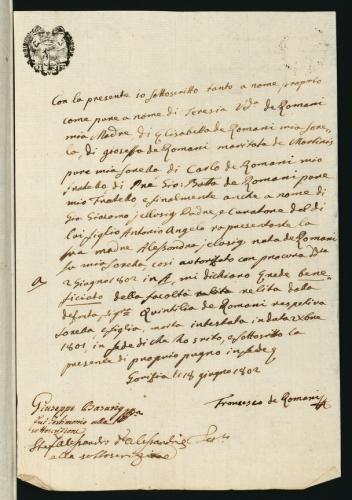 Con la presente io sottoscritto tanto a nome proprio
come pure a nome di Teresia Vda de Romani
mia Madre di Elisabetta de Romani mia sorel-
la, di gioseffa de Romani maritata de Martinis
pure mia sorella di Carlo de Romani mio
fratello di Pre Gio: Batta de Romani pure
mio Fratello, e finalmente anche a nome di
Gio Giacomo Padre, e Curatore del di
Lui figlio Antonio Angelo rapresentante la
sua madre Alessandra nata de Romani
fu mia sorella, così autorizato con procura
2 Giugno 1802 in mi dichiaro Erede bene-
ficiato della facoltà relita dalla
defonta Quintilia de Romani respetiva
sorella e figlia, morta intestata in data
1801, in fede di che Ho scrito, e sottoscritto la
presente di proprio pugno in fede
Gorizia li 18 giugno 1802
Francesco de Romani
Giuseppe
Testimonio alla
sottoscrizione
Alessandro d'Alessandri
alla sottoscrizione